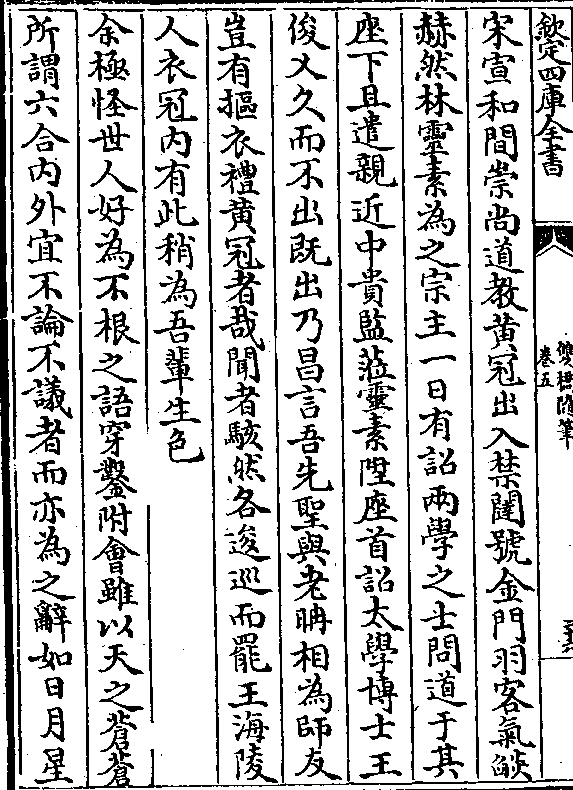 欽定四庫全書
雙橋隨筆
卷五
宋宣和間崇尚道教黄冠出入禁闥號金門羽客氣燄
赫然林靈素為之宗主一日有詔兩學之士問道于其
座下且遣親近中貴監蒞靈素陞座首詔太學博士王
俊乂久而不出既出乃昌言吾先聖與老聃相為師友
豈有摳衣禮黄冠者哉聞者駭然各逡巡而罷王海陵
人衣冠内有此稍為吾輩生色
余極怪世人好為不根之語穿鑿附會雖以天之蒼蒼
所謂六合内外宜不論不議者而亦為之辭如日月星